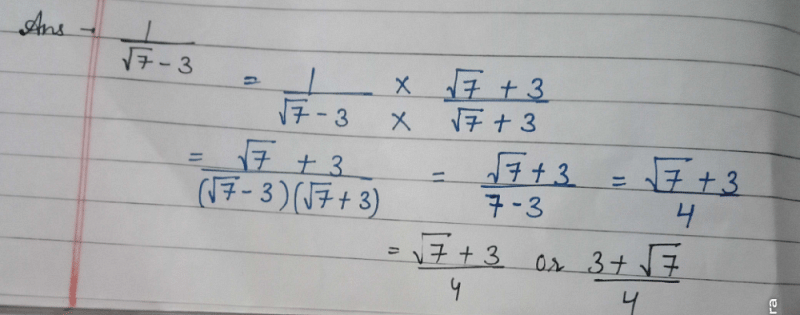 Ans → 1/(√7 - 3)
= 1/(√7 - 3) × (√7 + 3)/(√7 + 3)
= (√7 + 3)/((√7 - 3)(√7 + 3)) = (√7 + 3)/(7 - 3) = (√7 + 3)/4
= (√7 + 3)/4 or (3 + √7)/4